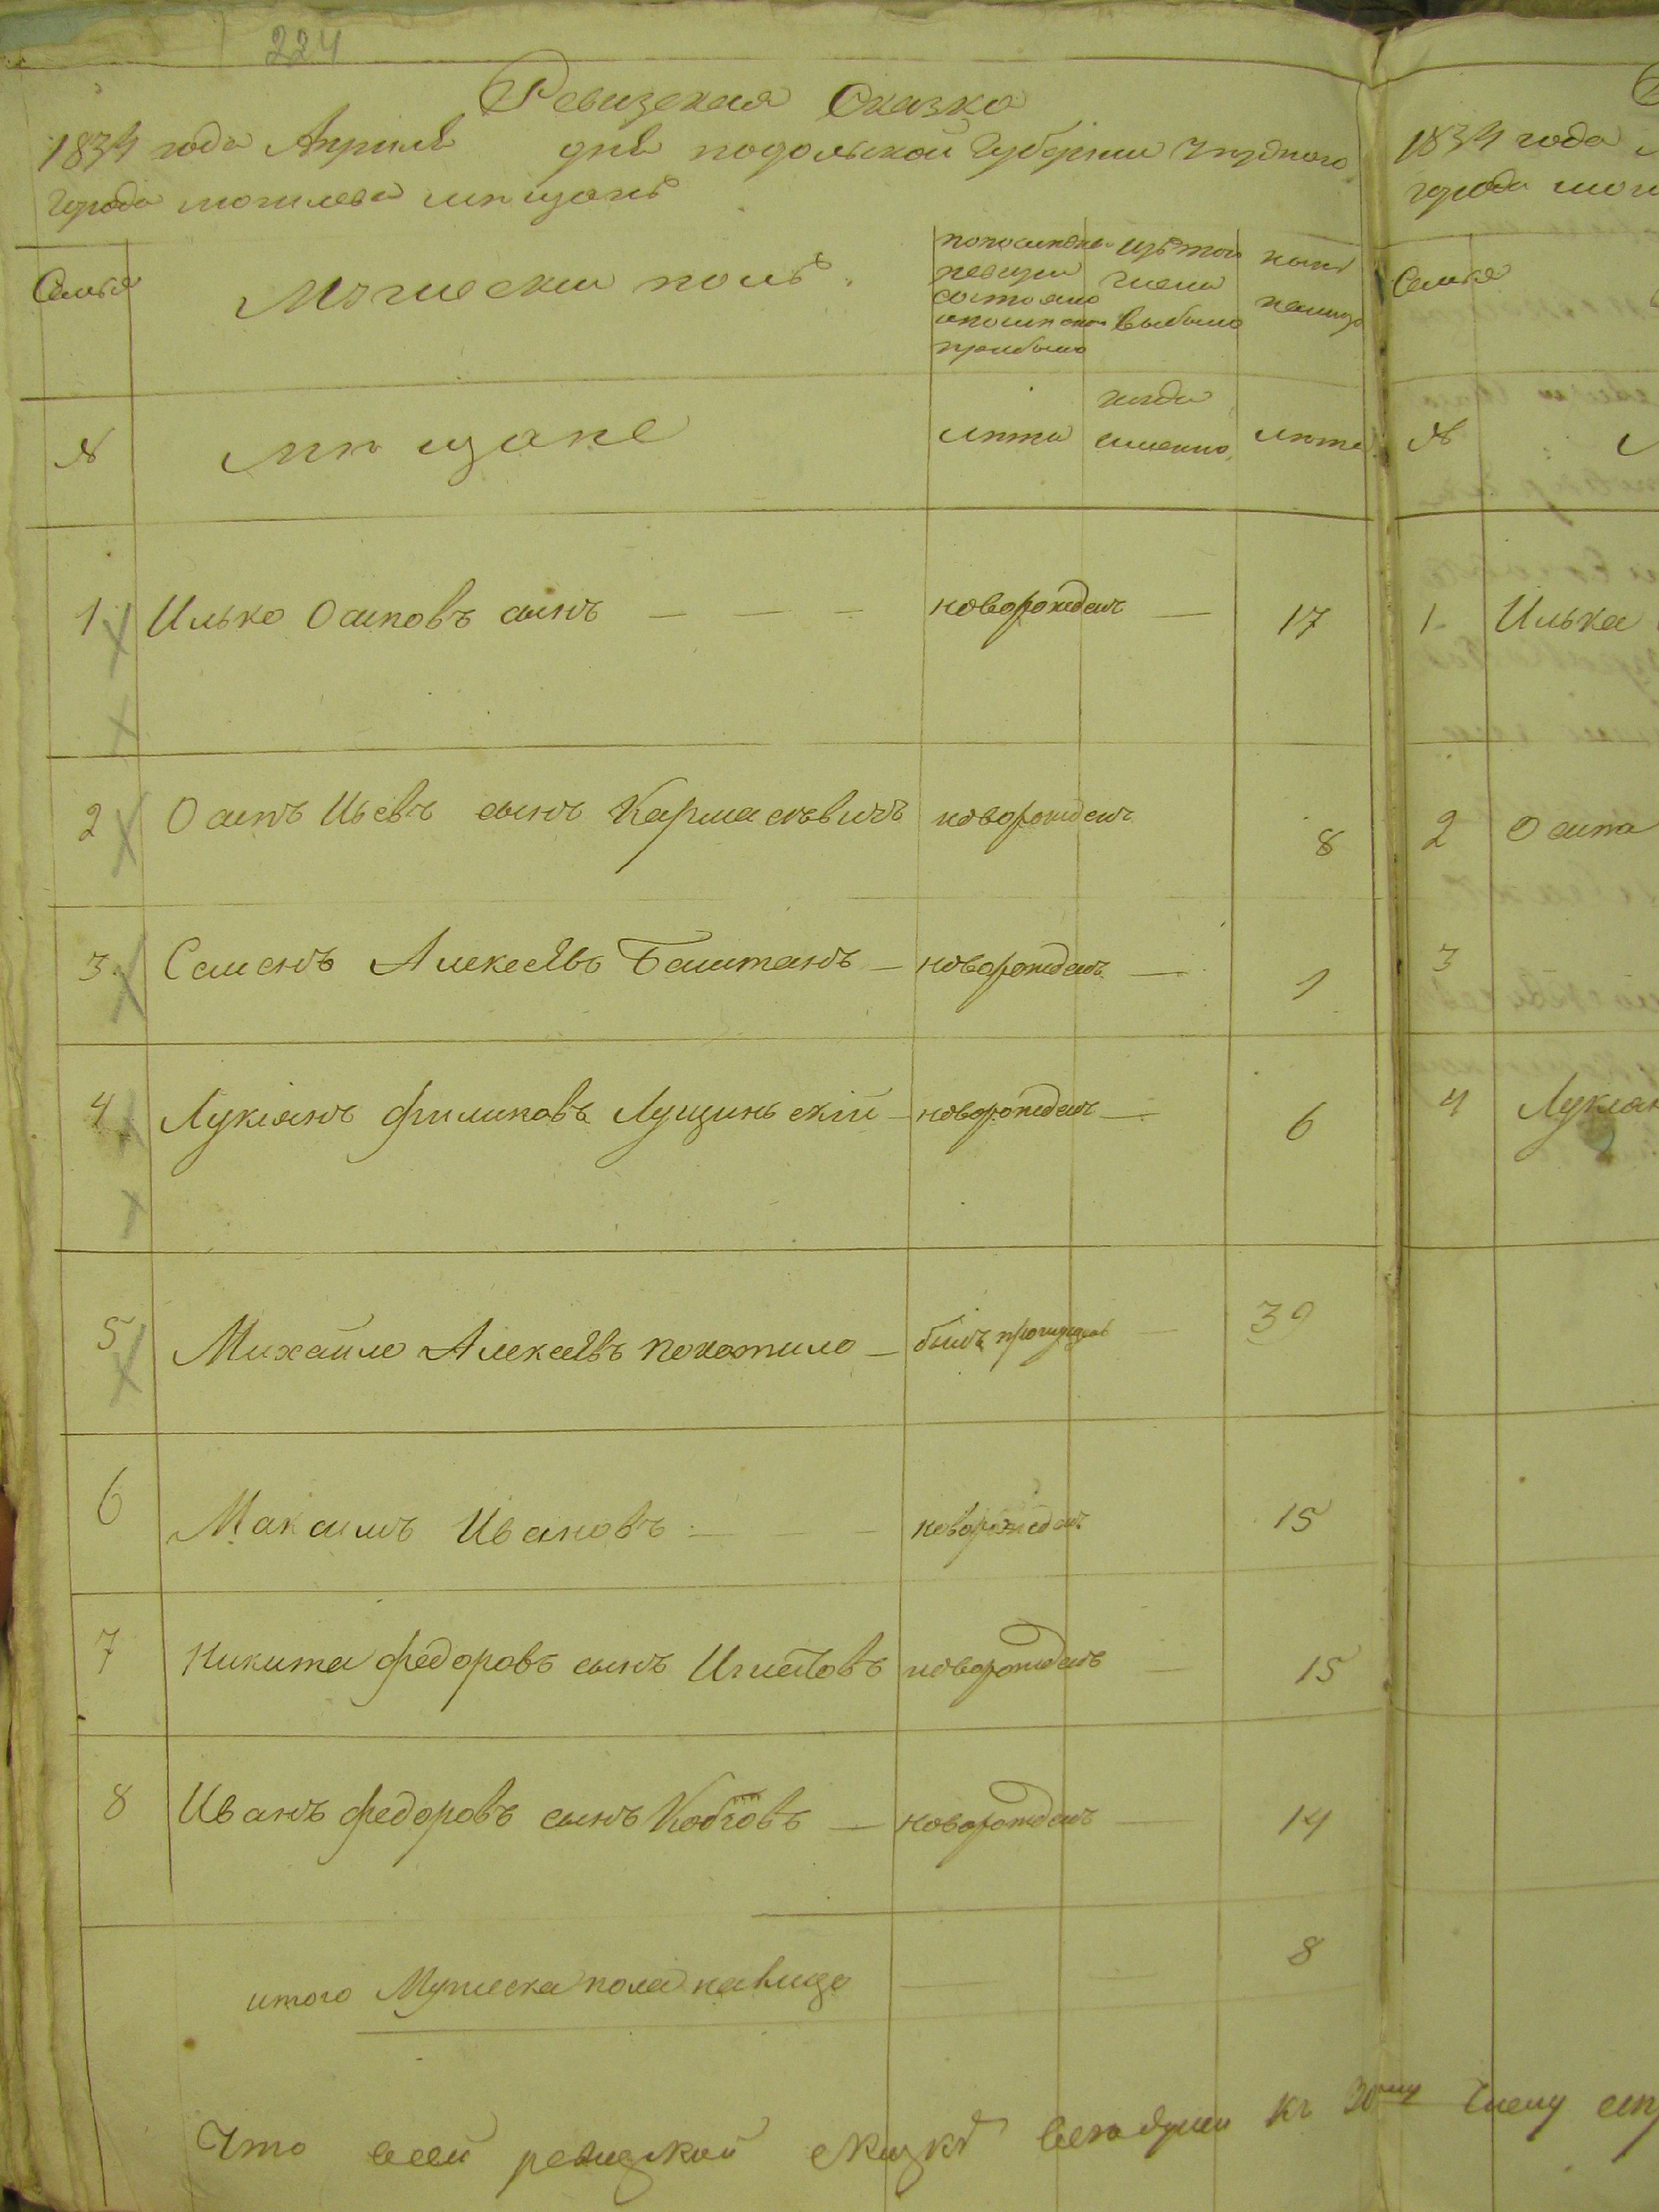 224
Ревизская Сказка
1834 года Апреля дня подольской Губернии Уездного
Города могилева мещанъ
Семья
Мужеска полъ
по последней ревизии состояло и после оной прибыло
Изъ того числа выбыло
ныне налицо
№
мещане
лета
когда именно
лета
1 Илько Осиповъ сынъ — — — новорожденъ — 17
2 Осипъ Ильевъ сынъ новорожденъ 8
3 Семенъ Алексеевъ Баштанъ — новорожденъ — 1
4 Лукіянъ Филиповъ Лущинскій — новорожденъ — 6
5 Михайло Алексеевъ Покотило — былъ — 39
6 Максимъ Ивановъ — — новорожденъ 15
7 Никита Федоровъ сынъ новорожденъ — 15
8 Иванъ Федоровъ сынъ — новорожденъ — 14
итого Мужеска пола налицо — — 8
Что в сей ревизкой сказке всех душ къ числу
1834 года
города
Семья
№
1. Илька
2 Осипа
3
4 Лукіян